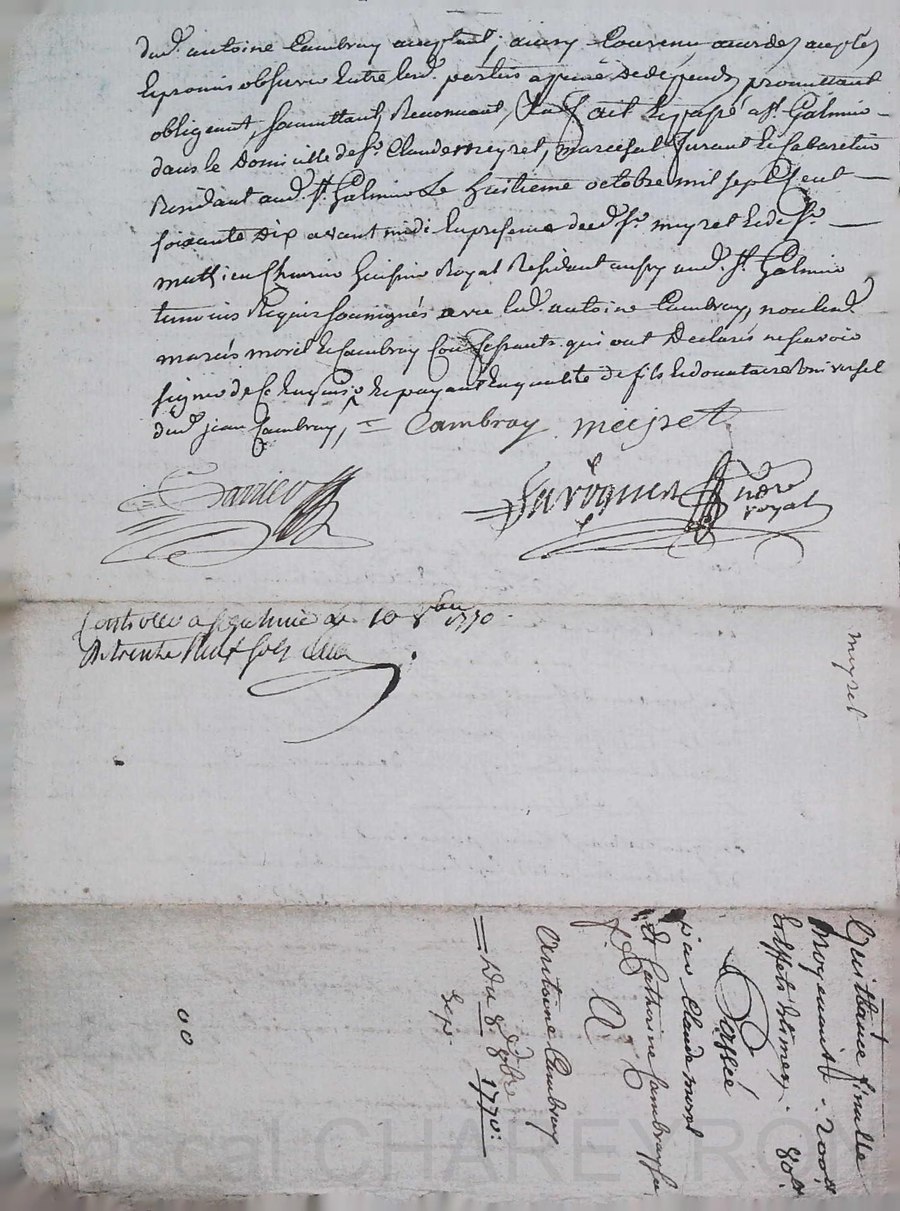 dud. antoine Cambray acceptant, ainsy Convenu accordes accepté
Et promis observer Entre lesd. parties a peine De dépends, promettant
obligeant, soumettant, Renoncant, fait Et passé a St. Galmier
dans le Domicille de Sr. Claude meyret, marechal ferant Et Cabaretier
Residant aud. St. Galmier Le huitieme octobre mil sept Cent
soixante Dix avant midi En presence dud. Sr. meyret Et de Sr.
mathieu huissier Royal Residant aussy aud. St. Galmier
temoins Requis soussignés avec led. antoine Cambray, non lesd.
mariés morel Et Cambray Confessants qui ont Déclarés ne sçavoir
signer de Ce Enquis Et payant En qualité de fils Et donnataire Universel
dud. jean Cambray, = Cambray. meyret
Nore
royal
Controllé a St galmier Le 10 8bre 1770.
Rt trente huit sols
meyret
Quittance finalle
moyennant 200ll
Effets Estimés 80ll
Passée
par Claude morel
Et Catherine Cambray sa
f.
A
Antoine Cambray
= Du 8. 8bre 1770:
Exp.
00
Pascal CHAREYRON